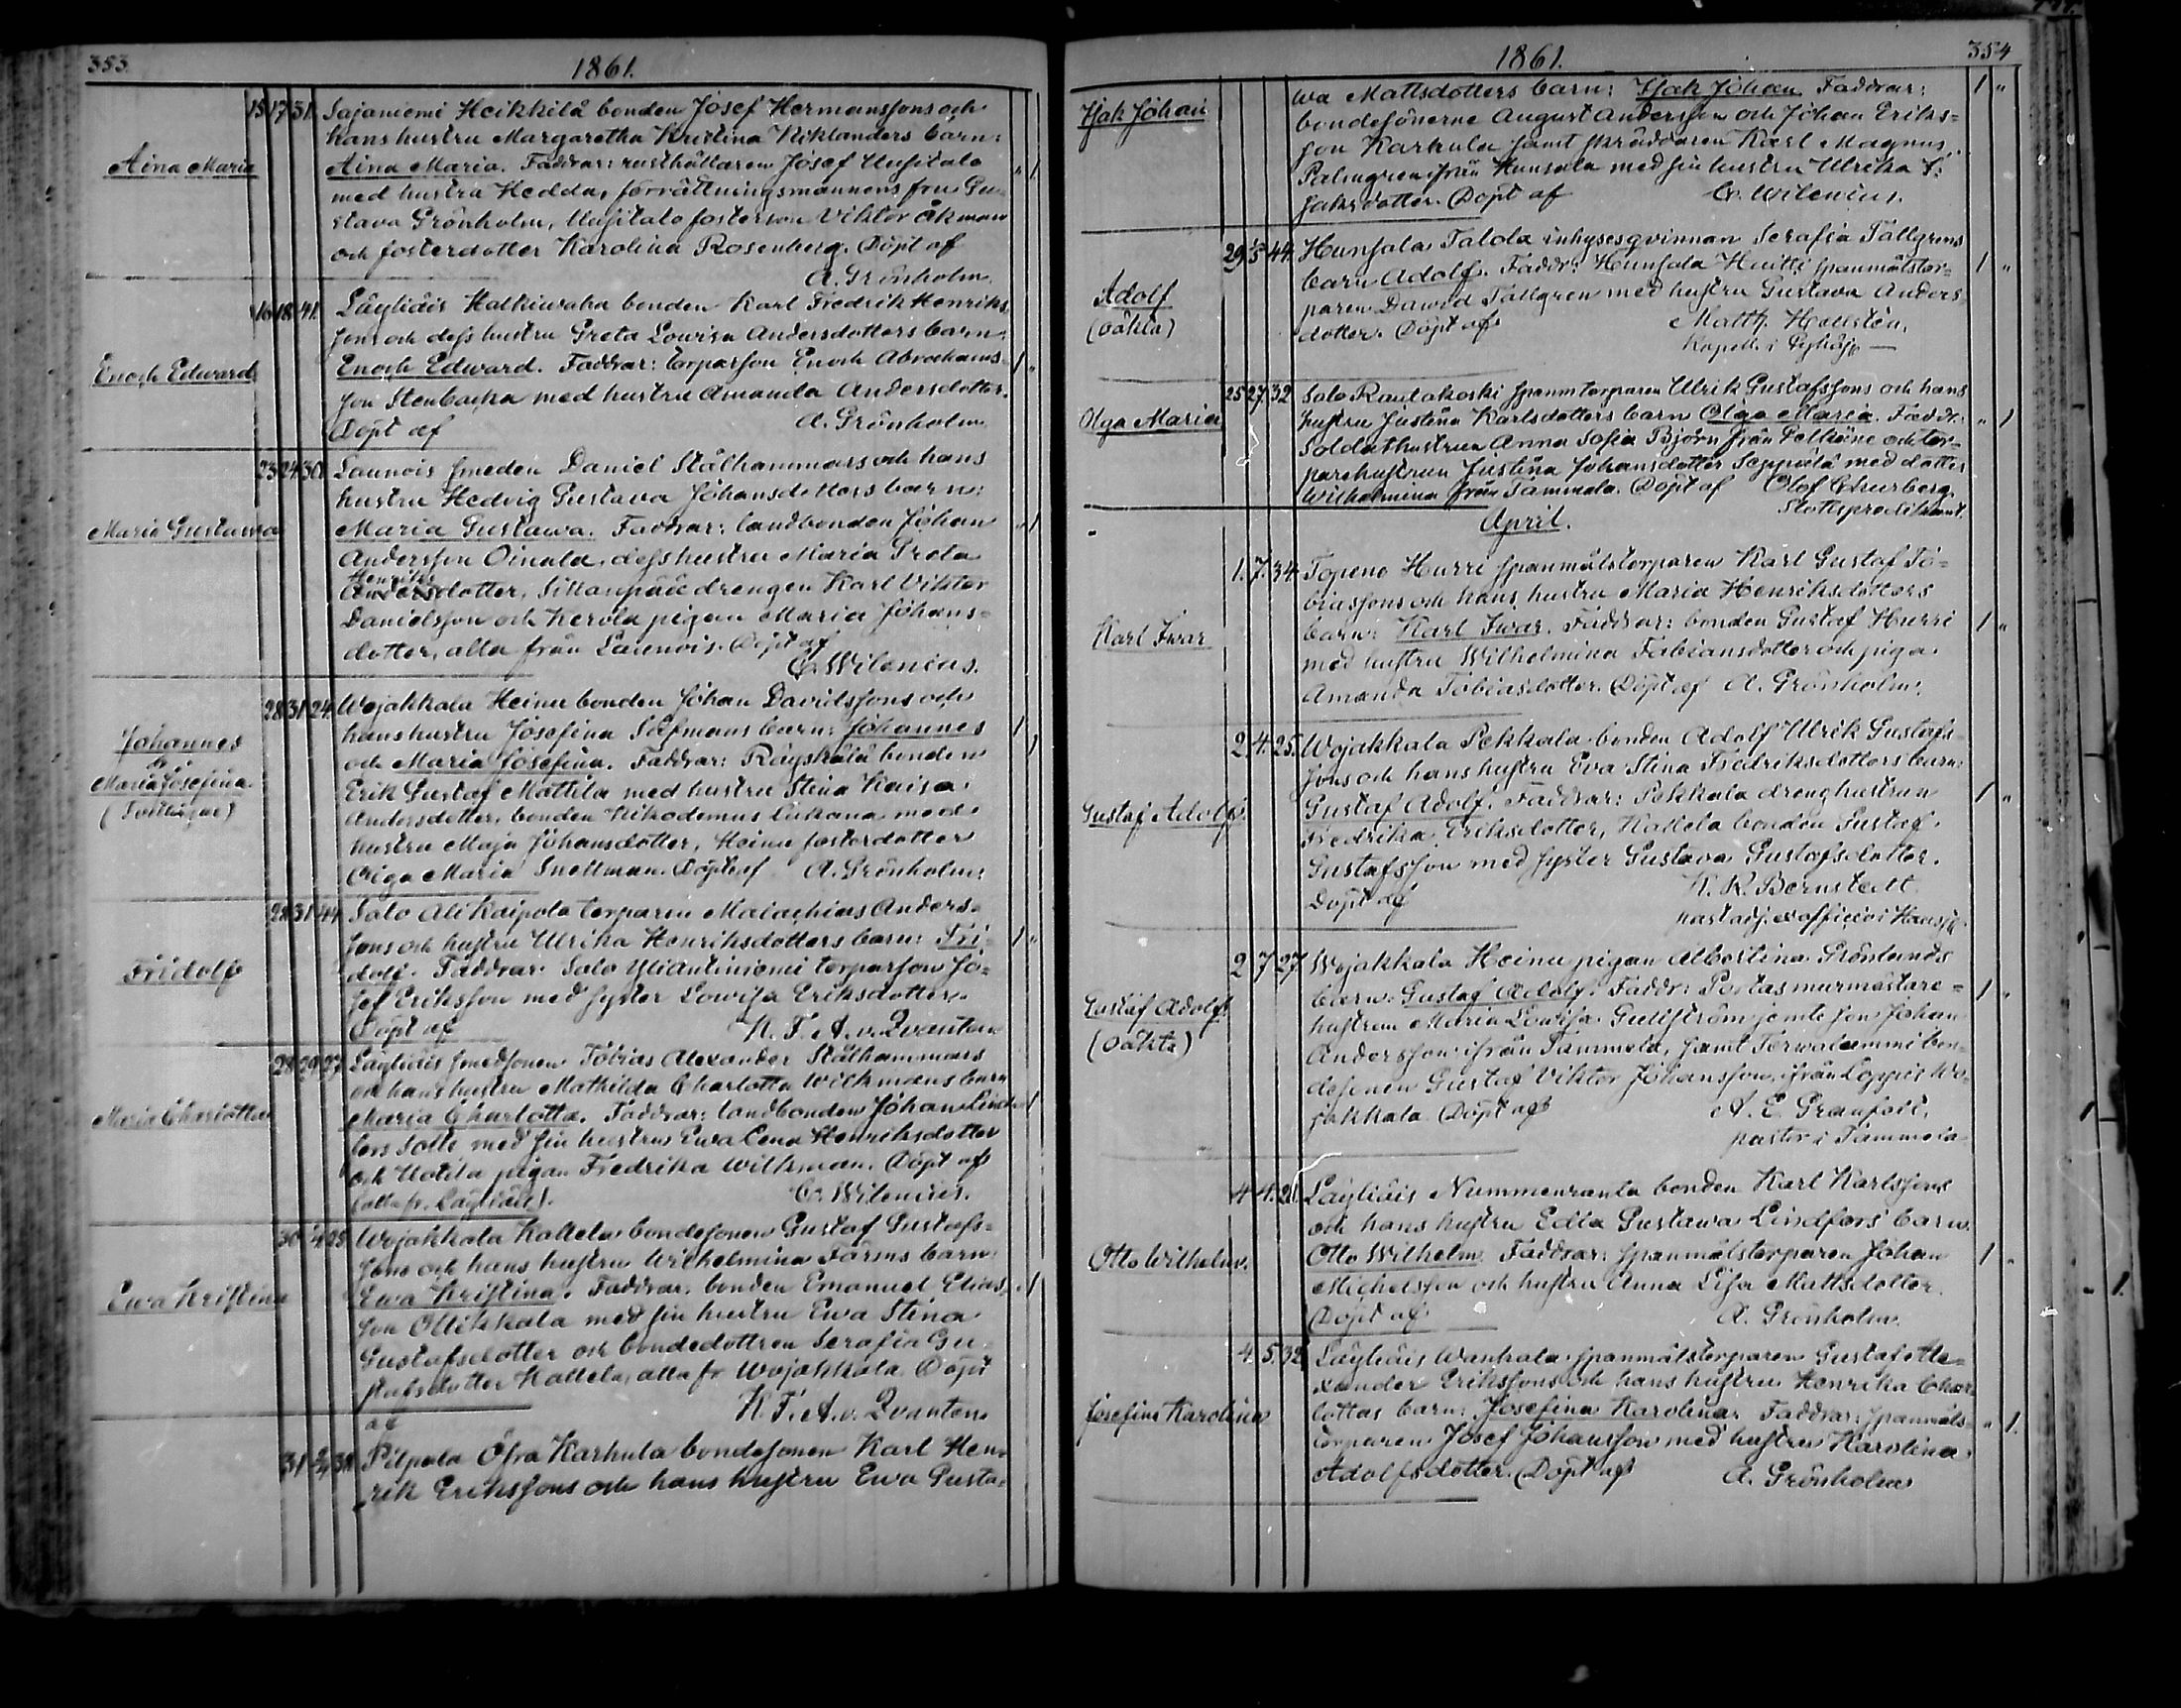 353.
1861.
Aina Maria
15 17 31. Sajaniemi Heikkilä bonden Josef Hermanssons och
hans hustru Margaretha Kristina Niklanders barn:
Aina Maria. Faddrar: rusthållaren Josef Uusitalo
med hustru Hedda, förrättningsmannens fru Gu-
stava Grönholm, Uusitalo fosterson Viktor Åkman
och fosterdotter Karolina Rosenberg. Döpt af
A. Grönholm.
Enoch Edward
16 18 41. Läyliäis Halkiwaha bonden Karl Fredrik Henriks-
sons och dess hustru Greta Lowisa Andersdotters barn:
Enoch Edward. Faddrar: torparson Enoch Abrahams-
son Stenbacka med hustru Amanda Andersdotter.
Döpt af
A. Grönholm
Maria Gustawa
23 24 30. Launois smeden Daniel Stålhammars och hans
hustru Hedvig Gustava Johansdotters barn:
Maria Gustawa. Faddrar: landbonden Johan
Andersson Oinala, dess hustru Maria Greta
Henriks
Andersdotter, Sillanpää drengen Karl Viktor
Danielsson och Kerola pigan Maria Johans-
dotter, alla från Launois. Döpt af
C. Wilenius.
Johannes
&
Maria Josefina
(Tvillingar)
28 31 24. Wojakkala Heinu bonden Johan Davidssons och
hans hustru Josefina Löfmans barn: Johannes
och Maria Josefina. Faddrar: Räyskälä bonden
Erik Gustaf Mattila med hustru Stina Kaisa
Andersdotter, bonden Nikodemus Liukana med
hustru Maja Johansdotter, Heinu fosterdotter
Olga Maria Snellman. Döpt af A. Grönholm.
Fridolf
28 31 44. Salo Alikaipola torparen Malachias Anders-
sons och hustru Ulrika Henriksdotters barn: Fri-
dolf. Faddrar: Salo Yliantiniemi torparson Jo-
sef Eriksson med syster Lowisa Eriksdotter.
Döpt af
N. F. A. v. Qvanten
Maria Charlotta
28 29 27. Läyliäis smedsonen Tobias Alexander Stålhammars
och hans hustru Mathilda Charlotta Wilkmans barn
Maria Charlotta. Faddrar: landbonden Johan Lind-
fors Sotti med sin hustru Ewa Lena Henriksdotter
och Uotila pigan Fredrika Wilkman. Döpt af
(alla fr. Läyliäis).
C. Wilenius.
Ewa Kristina
30 1/4 25 Wojakkala Kattela bondesonen Gustaf Gustafs-
sons och hans hustru Wilhelmina Färms barn
Ewa Kristina. Faddrar: bonden Emanuel Elias-
son Ollikkala med sin hustru Ewa Stina
Gustafsdotter och bondedottren Serafia Gu-
stafsdotter Kattela, alla fr. Wojakkala. Döpt
af
N. F. A. v. Qvanten
31 Pilpala Öfra Karhula bondesonen Karl Hen-
rik Erikssons och hans hustru Ewa Gusta-
354
1861.
Isak Johan
wa Mattsdotters barn: Isak Johan. Faddrar:
bondesönerne August Andersson och Johan Eriks-
son Karhula samt skräddaren Karl Magnus
Palmgren ifrån Hunsala med sin hustru Ulrika
Jaksdotter. Döpt af C. Wilenius.
Adolf
(oäkta)
29 44. Hunsala Talola inhysesqvinnan Serafia Tällgrens
barn Adolf. Faddr: Hunsala Huitti spanmålstor-
paren Dawid Tällgren med hustru Gustava Anders-
dotter. Döpt af Matth. Hollstén,
Kapell. i
Olga Maria
25 27 32 Salo Rautakoski spanm torparen Ulrik Gustafssons och hans
hustru Justina Karlsdotters barn Olga Maria. Faddr:
Soldathustrun Anna Sofia Björn från Pelkäne och tor-
parehustrun Justina Johansdotter Seppälä med dotter
Wilhelmina från Tammela. Döpt af Olof Churberg
Slottspredikant.
April.
Karl Iwar
1. 7. 34. Topeno Hurri spanmålstorparen Karl Gustaf To-
biassons och hans hustru Maria Henriksdotters
barn: Karl Iwar. Faddrar: bonden Gustaf Hurri
med hustru Wilhelmina Fabiansdotter och piga
Amanda Tobiasdotter. Döpt af A. Grönholm.
Gustaf Adolf
2. 4. 25. Wojakkala Pekkala bonden Adolf Ulrik Gustafs-
sons och hans hustru Eva Stina Fredriksdotters barn:
Gustaf Adolf. Faddrar: Pekkala dränghustrun
Fredrika Eriksdotter, Kattela bonden Gustaf
Gustafsson med syster Gustava Gustafsdotter.
Döpt af
K. R. Bernstedt
past adj. ex officio i Hausjr.
Gustaf Adolf
(oäkta)
2 7 27 Wojakkala Heinu pigan Albertina Grönlunds
barn: Gustaf Adolf. Faddr: Portas murmästare-
hustrun Maria Lowisa Gullström jemte son Johan
Andersson ifrån Tammela, samt Terwalammi bon-
desonen Gustaf Viktor Johansson, ifrån Loppis Wo-
jakkala. Döpt af A. E. Granfelt.
pastor i Tammela
Otto Wilhelm.
4 4. 21. Läyliäis Nummenranta bonden Karl Karlssons
och hans hustru Edla Gustawa Lindfors barn
Otto Wilhelm. Faddrar: spanmålstorparen Johan
Michelsson och hustru Anna Lisa Mattsdotter.
Döpt af
A. Grönholm.
Josefina Karolina
4 5. 32 Läyliäis Wanhala spanmålstorparen Gustaf Ale-
xander Erikssons och hans hustru Henrika Char-
lottas barn: Josefina Karolina. Faddrar: spanmåls-
torparen Josef Johansson med hustru Karolina
Adolfsdotter. Döpt af A. Grönholm